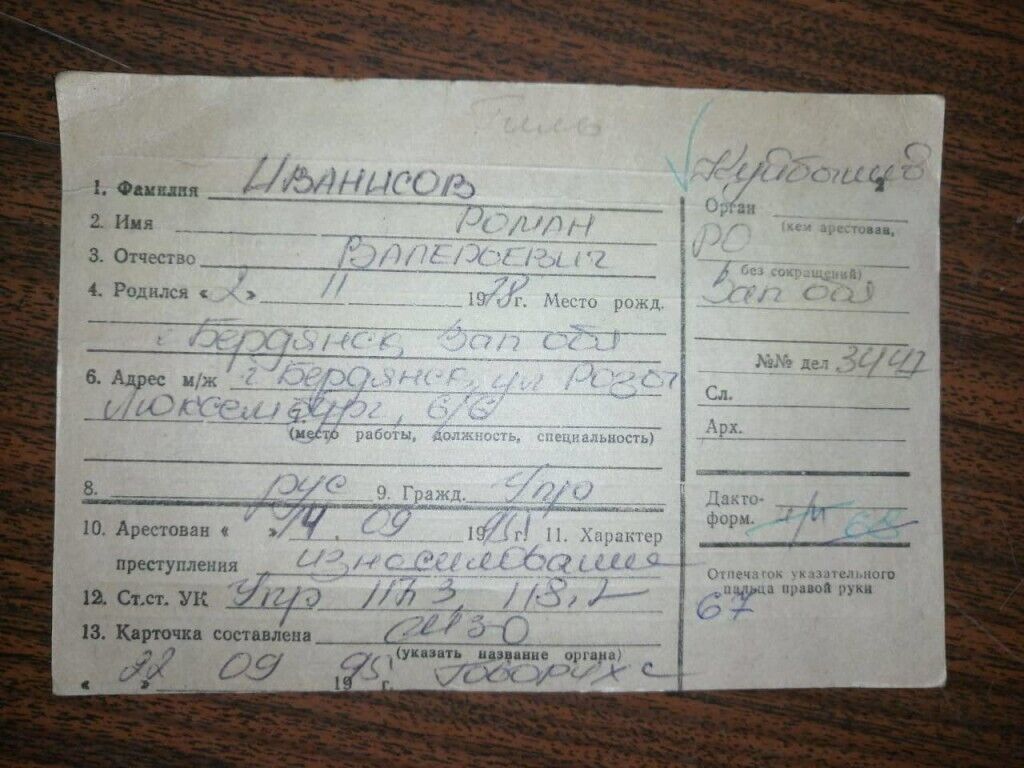 1. Фамилия ИВАНИСОВ
2. Имя РОМАН
3. Отчество ВАЛЕРЬЕВИЧ
4. Родился «2» 11 1978г. Место рожд.
г. Бердянск Зап обл
6. Адрес м/ж г Бердянск, ул Розы
Люксембург, 6/6
(место работы, должность, специальность)
8. рус 9. Гражд. Укр
10. Арестован « »14. 09 1995г. 11. Характер
преступления изнасилование
12. Ст.ст. УК Укр 117 ч 3, 118,2
13. Карточка составлена СИЗО
(указать название органа)
«22» 09 1995 г.
Орган
(кем арестован,
РО
без сокращений)
Зап обл
№№ дел
Сл.
Арх.
Дакто-
форм.
Отпечаток указательного
пальца правой руки
67